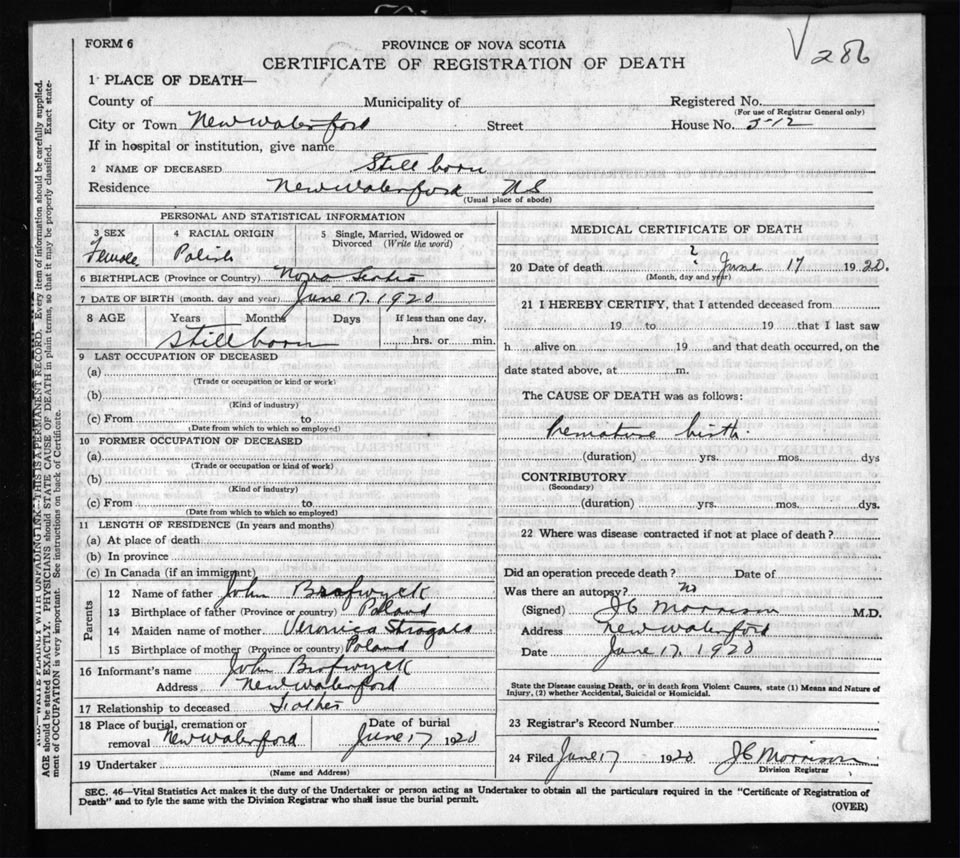 FORM 6
286
PROVINCE OF NOVA SCOTIA
CERTIFICATE OF REGISTRATION OF DEATH
1 PLACE OF DEATH—
County of Municipality of Registered No.
(For use of Registrar General only)
City or Town New Waterford Street House No.
If in hospital or institution, give name
2 NAME OF DECEASED Stillborn
Residence New Waterford NS
(Usual place of abode)
PERSONAL AND STATISTICAL INFORMATION
3 SEX 4 RACIAL ORIGIN 5 Single, Married, Widowed or
Divorced (Write the word)
Female Polish
6 BIRTHPLACE (Province or Country) Nova Scotia
7 DATE OF BIRTH (month, day and year) June 17. 1920
8 AGE Years Months Days If less than one day,
Stillborn hrs. or min.
9 LAST OCCUPATION OF DECEASED
(a)
(Trade or occupation or kind or work)
(b)
(Kind of industry)
(c) From to
(Date from which to which so employed)
10 FORMER OCCUPATION OF DECEASED
(a)
(Trade or occupation or kind of work)
(b)
(Kind of industry)
(c) From to
(Date from which to which so employed)
11 LENGTH OF RESIDENCE (In years and months)
(a) At place of death
(b) In province
(c) In Canada (if an immigrant)
Parents
12 Name of father John
13 Birthplace of father (Province or country) Poland
14 Maiden name of mother Veronica
15 Birthplace of mother (Province or country) Poland
16 Informant's name John
Address New Waterford
17 Relationship to deceased Father
18 Place of burial, cremation or Date of burial
removal New Waterford June 17 1920
19 Undertaker
(Name and Address)
MEDICAL CERTIFICATE OF DEATH
20 Date of death ? June 17 1920.
(Month, day and year)
21 I HEREBY CERTIFY, that I attended deceased from
19 to 19 that I last saw
h alive on 19 and that death occurred, on the
date stated above, at m.
The CAUSE OF DEATH was as follows:
Premature birth.
(duration) yrs. mos. dys
CONTRIBUTORY
(Secondary)
(duration) yrs. mos. dys.
22 Where was disease contracted if not at place of death?
Did an operation precede death? Date of
Was there an autopsy? No
(Signed) JC Morrison M.D.
Address New Waterford
Date June 17. 1920
State the Disease causing Death, or in death from Violent Causes, state (1) Means and Nature of
Injury, (2) whether Accidental, Suicidal or Homicidal.
23 Registrar's Record Number
24 Filed June 17 1920 JC Morrison
Division Registrar
SEC. 46—Vital Statistics Act makes it the duty of the Undertaker or person acting as Undertaker to obtain all the particulars required in the "Certificate of Registration of
Death" and to fyle the same with the Division Registrar who shall issue the burial permit.
(OVER)
WRITE PLAINLY WITH UNFADING INK—THIS IS A PERMANENT RECORD. Every item of information should be carefully supplied.
AGE should be stated EXACTLY. PHYSICIANS should STATE CAUSE OF DEATH in plain terms, so that it may be properly classified. Exact state-
ment of OCCUPATION is very important. See instructions on back of Certificate.